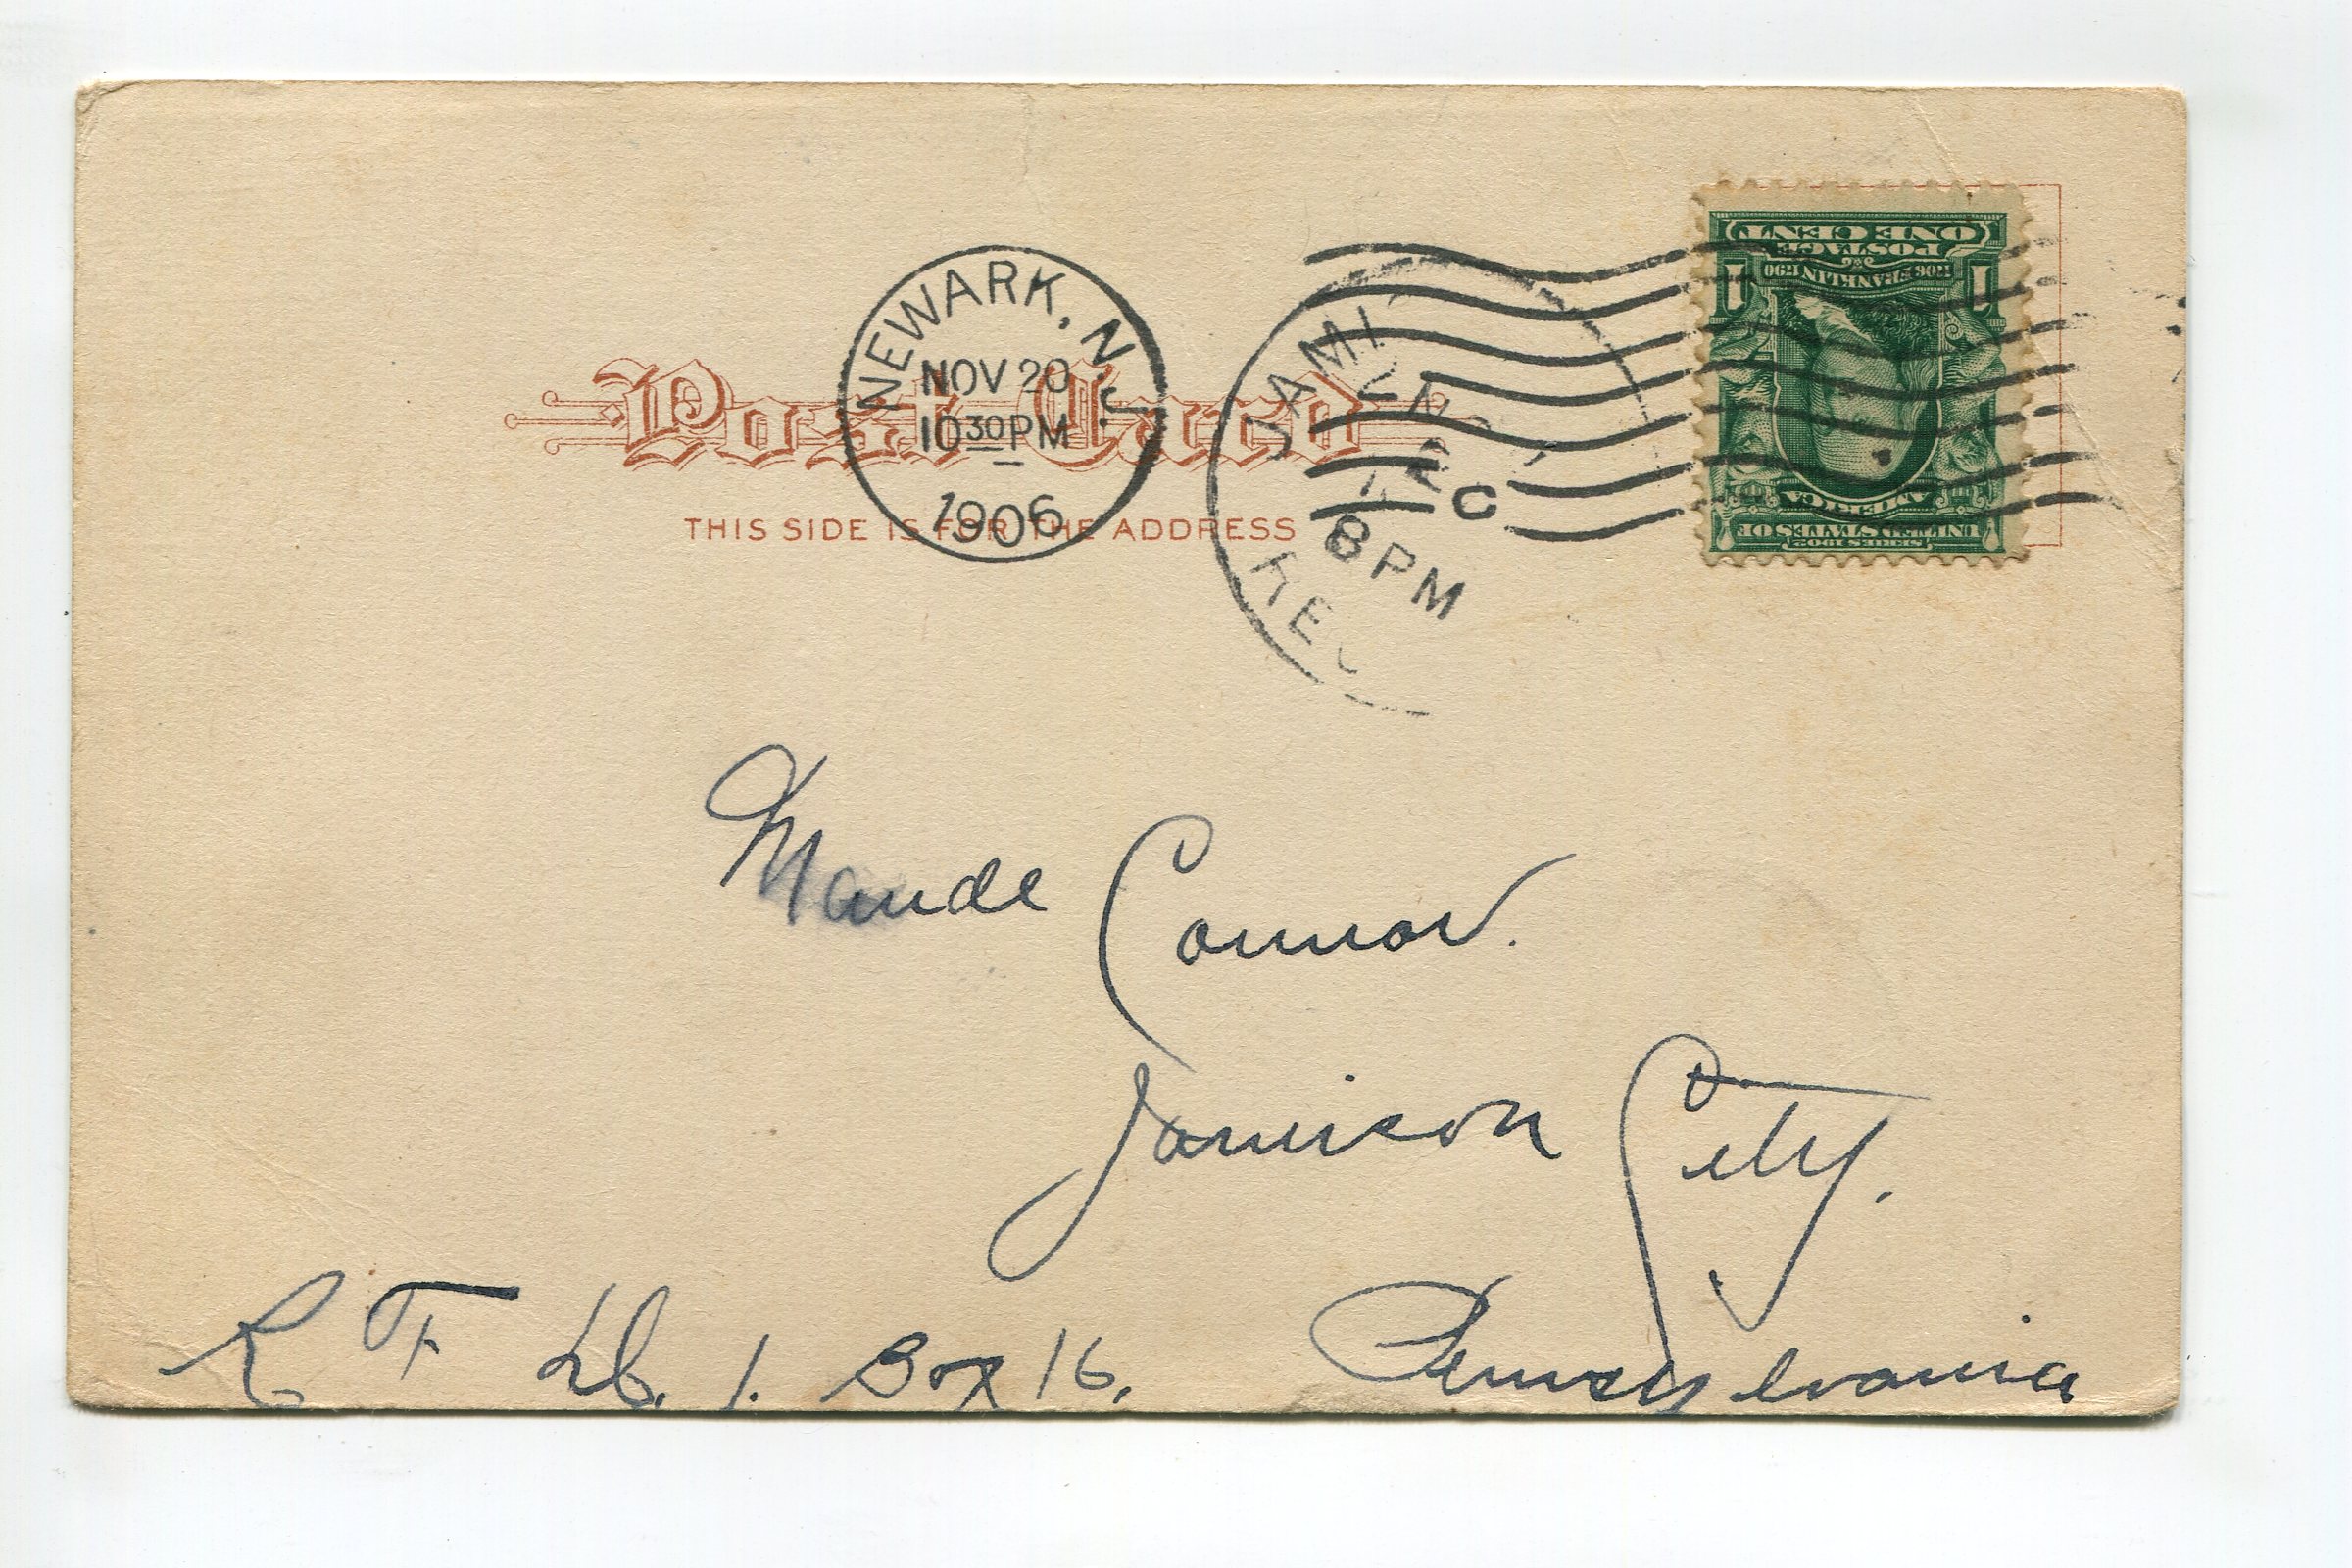 NEWARK, N.J.
NOV 20
10 30 PM
1906
Post Card
THIS SIDE IS FOR THE ADDRESS
8 PM
ONE CENT
POSTAGE
1706 FRANKLIN 1790
1 1
UNITED STATES OF
AMERICA
SERIES 1902
Maude Connor.
Jamison City.
R F D. 1. Box 16.
Pennsylvania